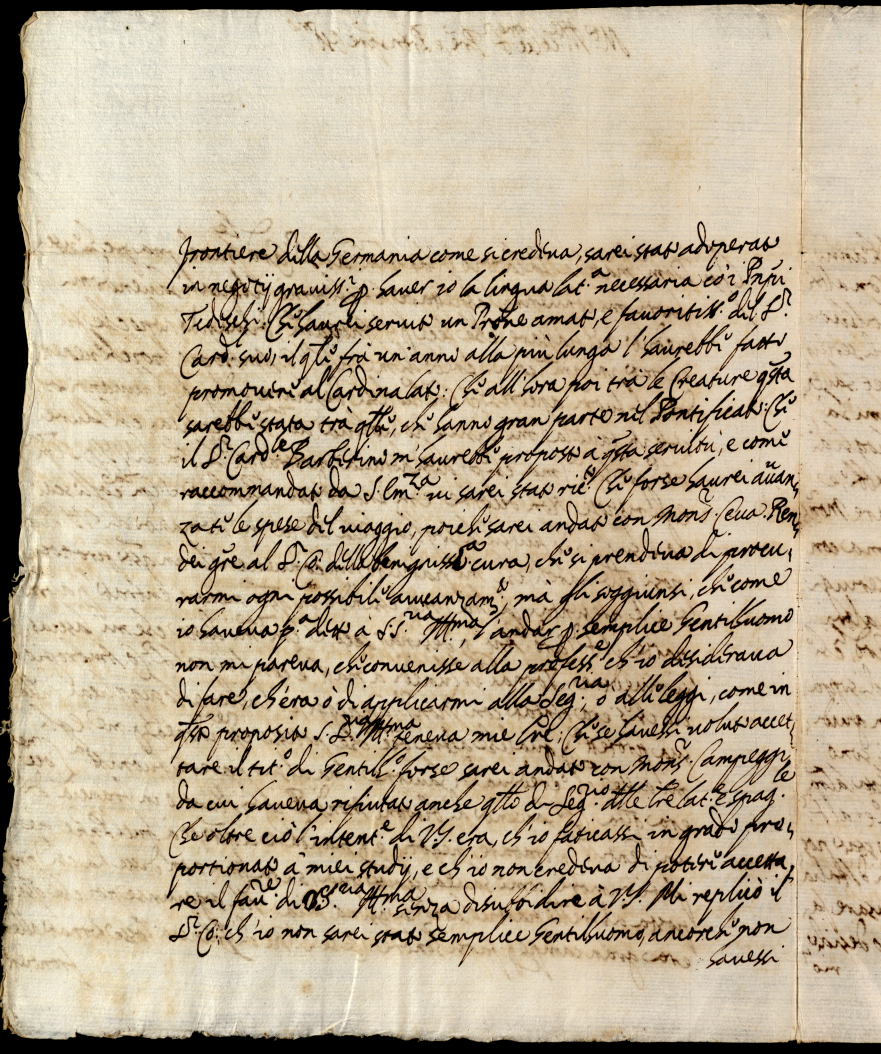 frontiere della Germania come si credeva, sarei stato adoperato
in negotij graviss.i p haver io la lingua lat.a necessaria co i Pnpi
Tedeschi. Che haurei servito un Prone amato, e favoritiss.o del S.r
Card. suo, il qle frà un'anno alla più lunga l'haurebbe fatto
promovere al Cardinalato: Che all'hora poi trà le Creature qsta
sarebbe stata trà qlle, che hanno gran parte nel Pontificato: Che
il S.r Card.le Barberino m'haurebbe proposto à qsta servitù, e come
raccommandato da S. Em.za vi sarei stato ric.o Che forse haurei avan,
zati le spese del viaggio, poiche sarei andato con Mons.r Ceva. Ren,
dei gre al S.r Co: della benigniss.a cura, che si prendeva di procu,
rarmi ogni possibile avvanzam.o, mà gli soggiunsi, che come
io haveva p.a detto à S.S.ria Ill.ma, l'andar p semplice Gentilhuomo
non mi pareva, che convenisse alla profess.e ch'io desiderava
di fare, ch'era ò di applicarmi alla Seg.ria, ò alle leggi, come in
qsto proposito S.S.ria Ill.ma teneva mie lre. Che se havessi voluto accet,
tare il tit.o di Gentilh.o forse sarei andato con Mons.r Campeggi
da cui haveva rifiutato anche qllo di Seg.rio dlle lre lat.e e spag.le
Che oltre ciò l'intent.e di V.S. era, ch'io faticassi in grado pro,
portionato à miei studij, e ch'io non credeva di potere accetta,
re il fav.re di S.S.ria Ill.ma senza disubbidire à V.S. Mi replicò il
S.r Co: ch'io non sarei stato semplice Gentilhuomo, ancorche non
havessi